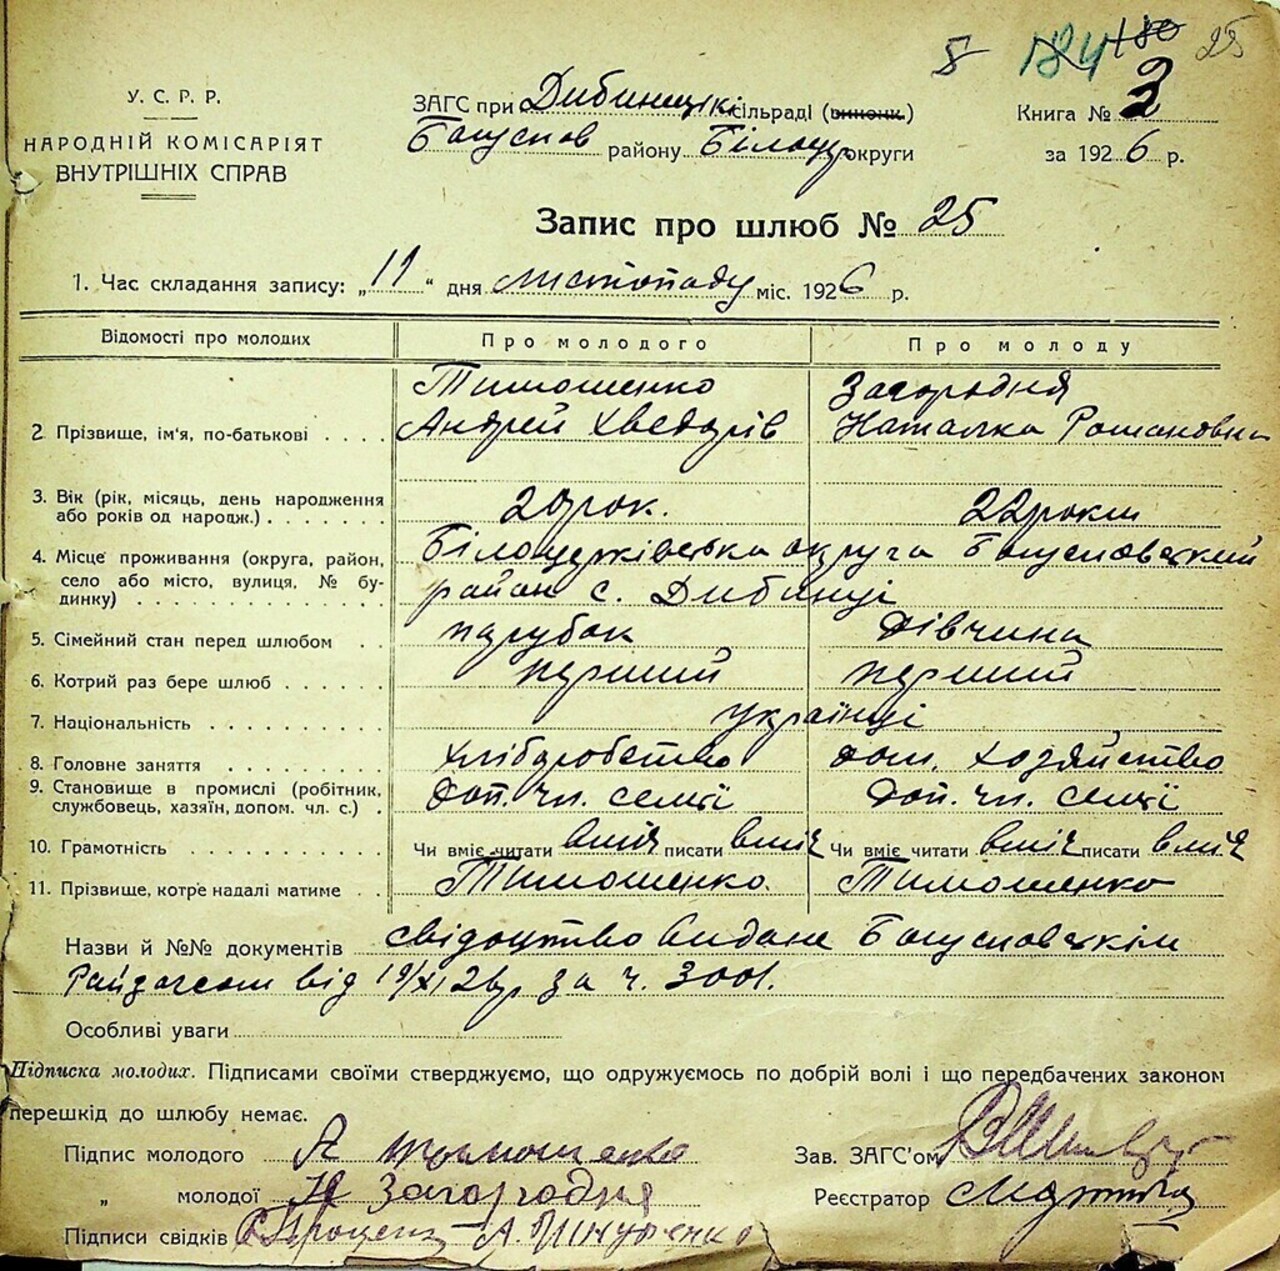 5 184 180 25
У. С. Р. Р.
НАРОДНІЙ КОМІСАРІЯТ
ВНУТРІШНІХ СПРАВ
ЗАГС при Дибинецькі сільраді (виконк.)
Богуслов району Білоцер округи
Книга № 3
за 1926 р.
Запис про шлюб № 25
1. Час складання запису: „11“ дня листопаду міс. 1926 р.
Відомості про молодих Про молодого Про молоду
Тимошенко Загородня
2 Прізвище, ім'я, по-батькові . . . . Андрей Хведорів Наталка Романовна
3. Вік (рік, місяць, день народження
або років од народж.) . . . . . . . 20 рок. 22 роки
4. Місце проживання (округа, район, Білоцерківська округа Богуславський
село або місто, вулиця, № бу- район с. Дибинці
динку) . . . . . . . . . . . . . .
5. Сімейний стан перед шлюбом . . парубок дівчина
6. Котрий раз бере шлюб . . . . . . перший перший
7. Національність . . . . . . . . . українці
8. Головне заняття . . . . . . . . хліборобство дом. хозяйство
9. Становище в промислі (робітник, доп. чл. семї доп. чл. семї
службовець, хазяїн, допом. чл. с.) .
10. Грамотність . . . . . . . . . . Чи вміє читати вміє писати вміє Чи вміє читати вміє писати вміє
11. Прізвище, котре надалі матиме . . Тимошенко. Тимошенко
Назви й №№ документів свідоцтво видане Богуславським
Райзагсом від 19/XI 26р за ч. 3001.
Особливі уваги
Підписка молодих. Підписами своїми стверджуємо, що одружуємось по добрій волі і що передбачених законом
перешкід до шлюбу немає.
Підпис молодого А Тимошенко Зав. ЗАГС'ом
„ молодої Н Загородня Реєстратор
Підписи свідків